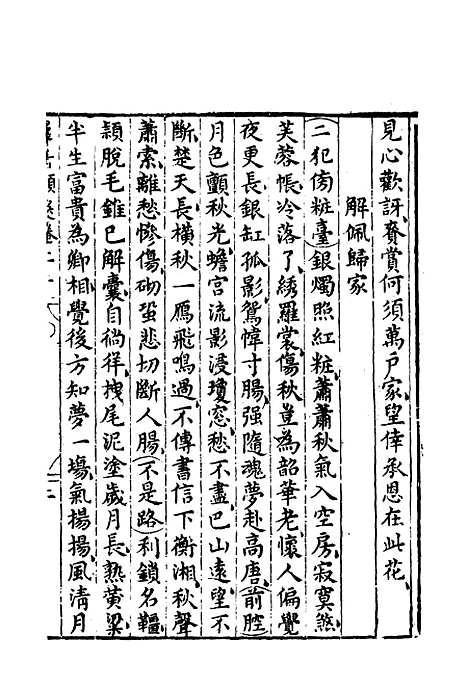 見心歡訝賚賞何須萬戶家望倖承恩在此花
解佩歸家
二犯傍粧臺銀燭照紅粧蕭蕭秋氣入空房寂寞煞
芙蓉帳冷落了綉羅裳傷秋豈為韶華老懷人偏覺
夜更長銀缸孤影鴛幃寸腸强隨魂夢赴高唐前腔
月色顫秋光蟾宮流影浸瓊窓愁不盡巴山遠望不
斷楚天長橫秋一雁飛鳴過不傳書信下衡湘秋聲
蕭索離愁慘傷砌蛩悲切斷人腸不是路利鎖名韁
穎脫毛錐已解囊自徜徉拽尾泥塗歲月長熟黄粱
半生富貴為卿相覺後方知夢一場氣揚揚風清月
卷二十